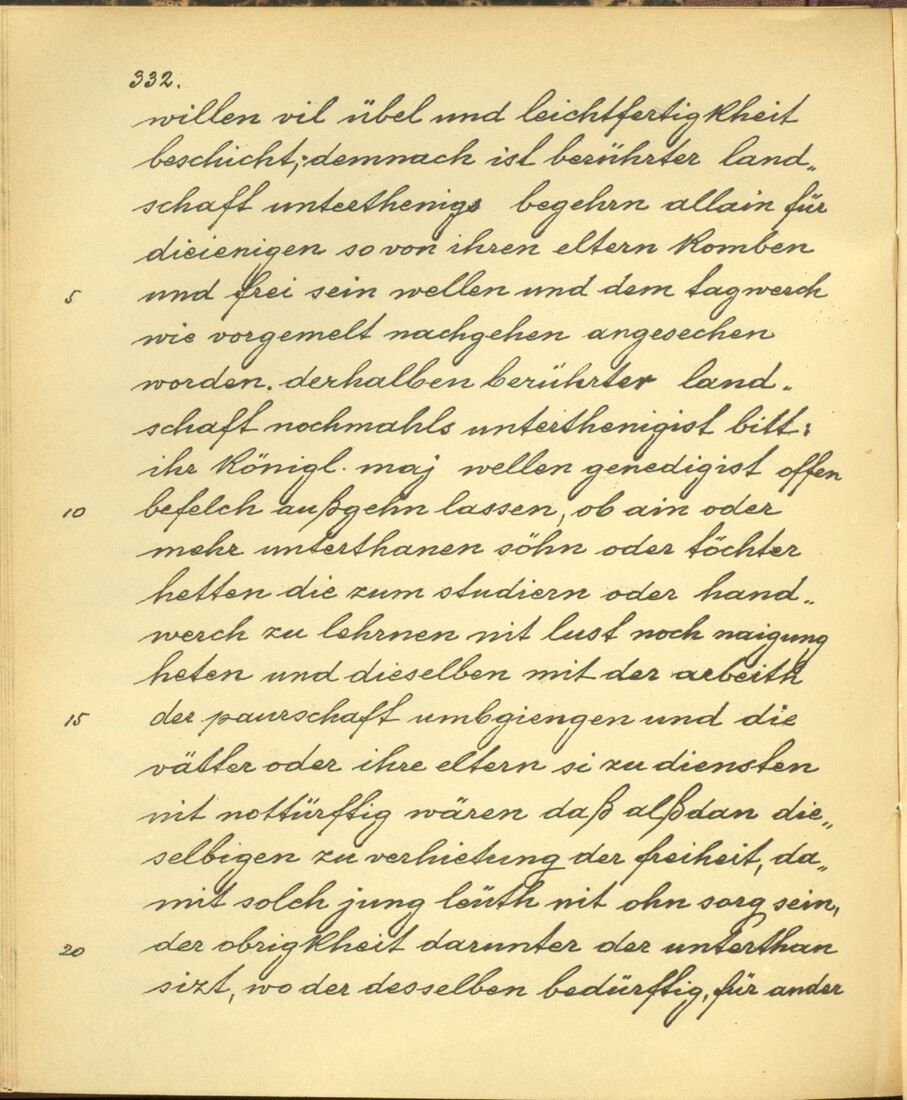 332.
willen vil übel und leichtfertigkheit
beschicht; demnach ist berührter land„
schaft unterthenigs begehrn allain für
dieienigen so von ihren eltern komben
5 und frei sein wellen und dem tagwerch
wie vorgemelt nachgehen angesechen
worden. derhalben berührter land„
schaft nochmahls unterthenigist bitt:
ihr königl. maj wellen genedigist offen
10 befelch außgehn lassen, ob ain oder
mehr unterthanen söhn oder töchter
hetten die zum studiern oder hand„
werch zu lehrnen nit lust noch naigung
heten und dieselben mit der arbeith
15 der paurschaft umbgiengen und die
vätter oder ihre eltern si zu diensten
nit nottürftig wären daß alßdan die„
selbigen zu verhietung der freiheit, da„
mit solch jung leüth nit ohn sorg sein,
20 der obrigkheit darunter der unterthan
sizt, wo der desselben bedürftig, für ander